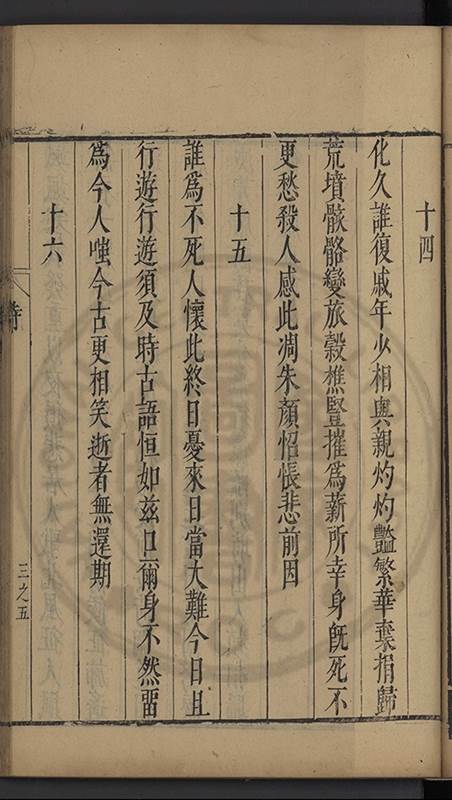 十四
化久誰復戚年少相與親灼灼豔繁華棄捐歸
荒墳骸骼變旅穀樵豎摧爲薪所幸身旣死不
更愁殺人感此凋朱顏怊悵悲前因
十五
誰爲不死人懷此終日憂來日當大難今日且
行遊行遊須及時古語恒如茲口爾身不然畱
爲今人嗤今古更相笑逝者無還期
十六
三之五